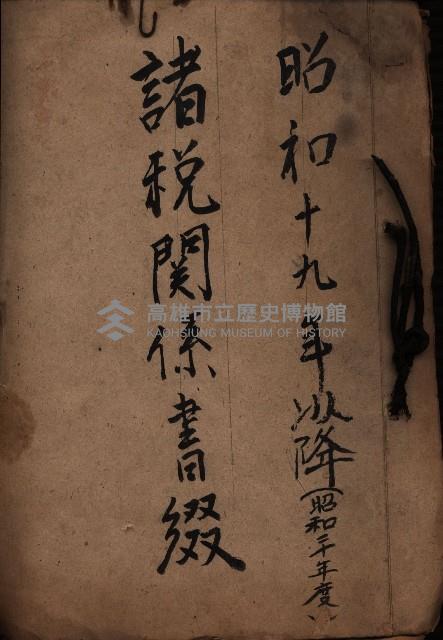 昭和十九年以降(昭和二十年度
諸税関係書綴
高雄市立歷史博物館
KAOHSIUNG MUSEUM OF HISTORY